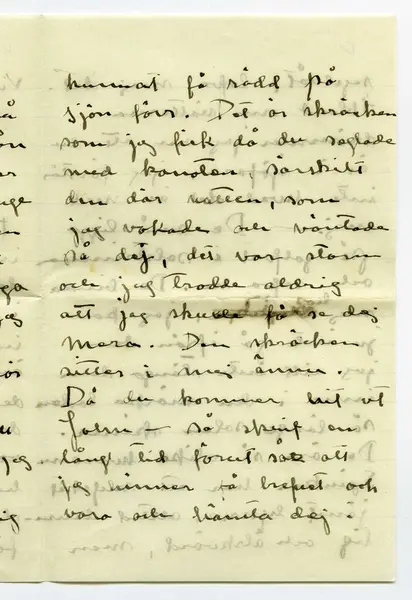 kunnat få rädd på
sjön förr. Det är skräcken
som jag fick då du seglade
med kanoten, särskilt
den där natten, som
jag vakade och väntade
så dej, det var storm
och jag trodde aldrig
att jag skulle få se dej
mera. Den skräcken
sitter i mej ännu.
Då du kommer hit ut
så skrif en
långt tid förut så att
jag hinner få brefvet och
vara och hämta dej i